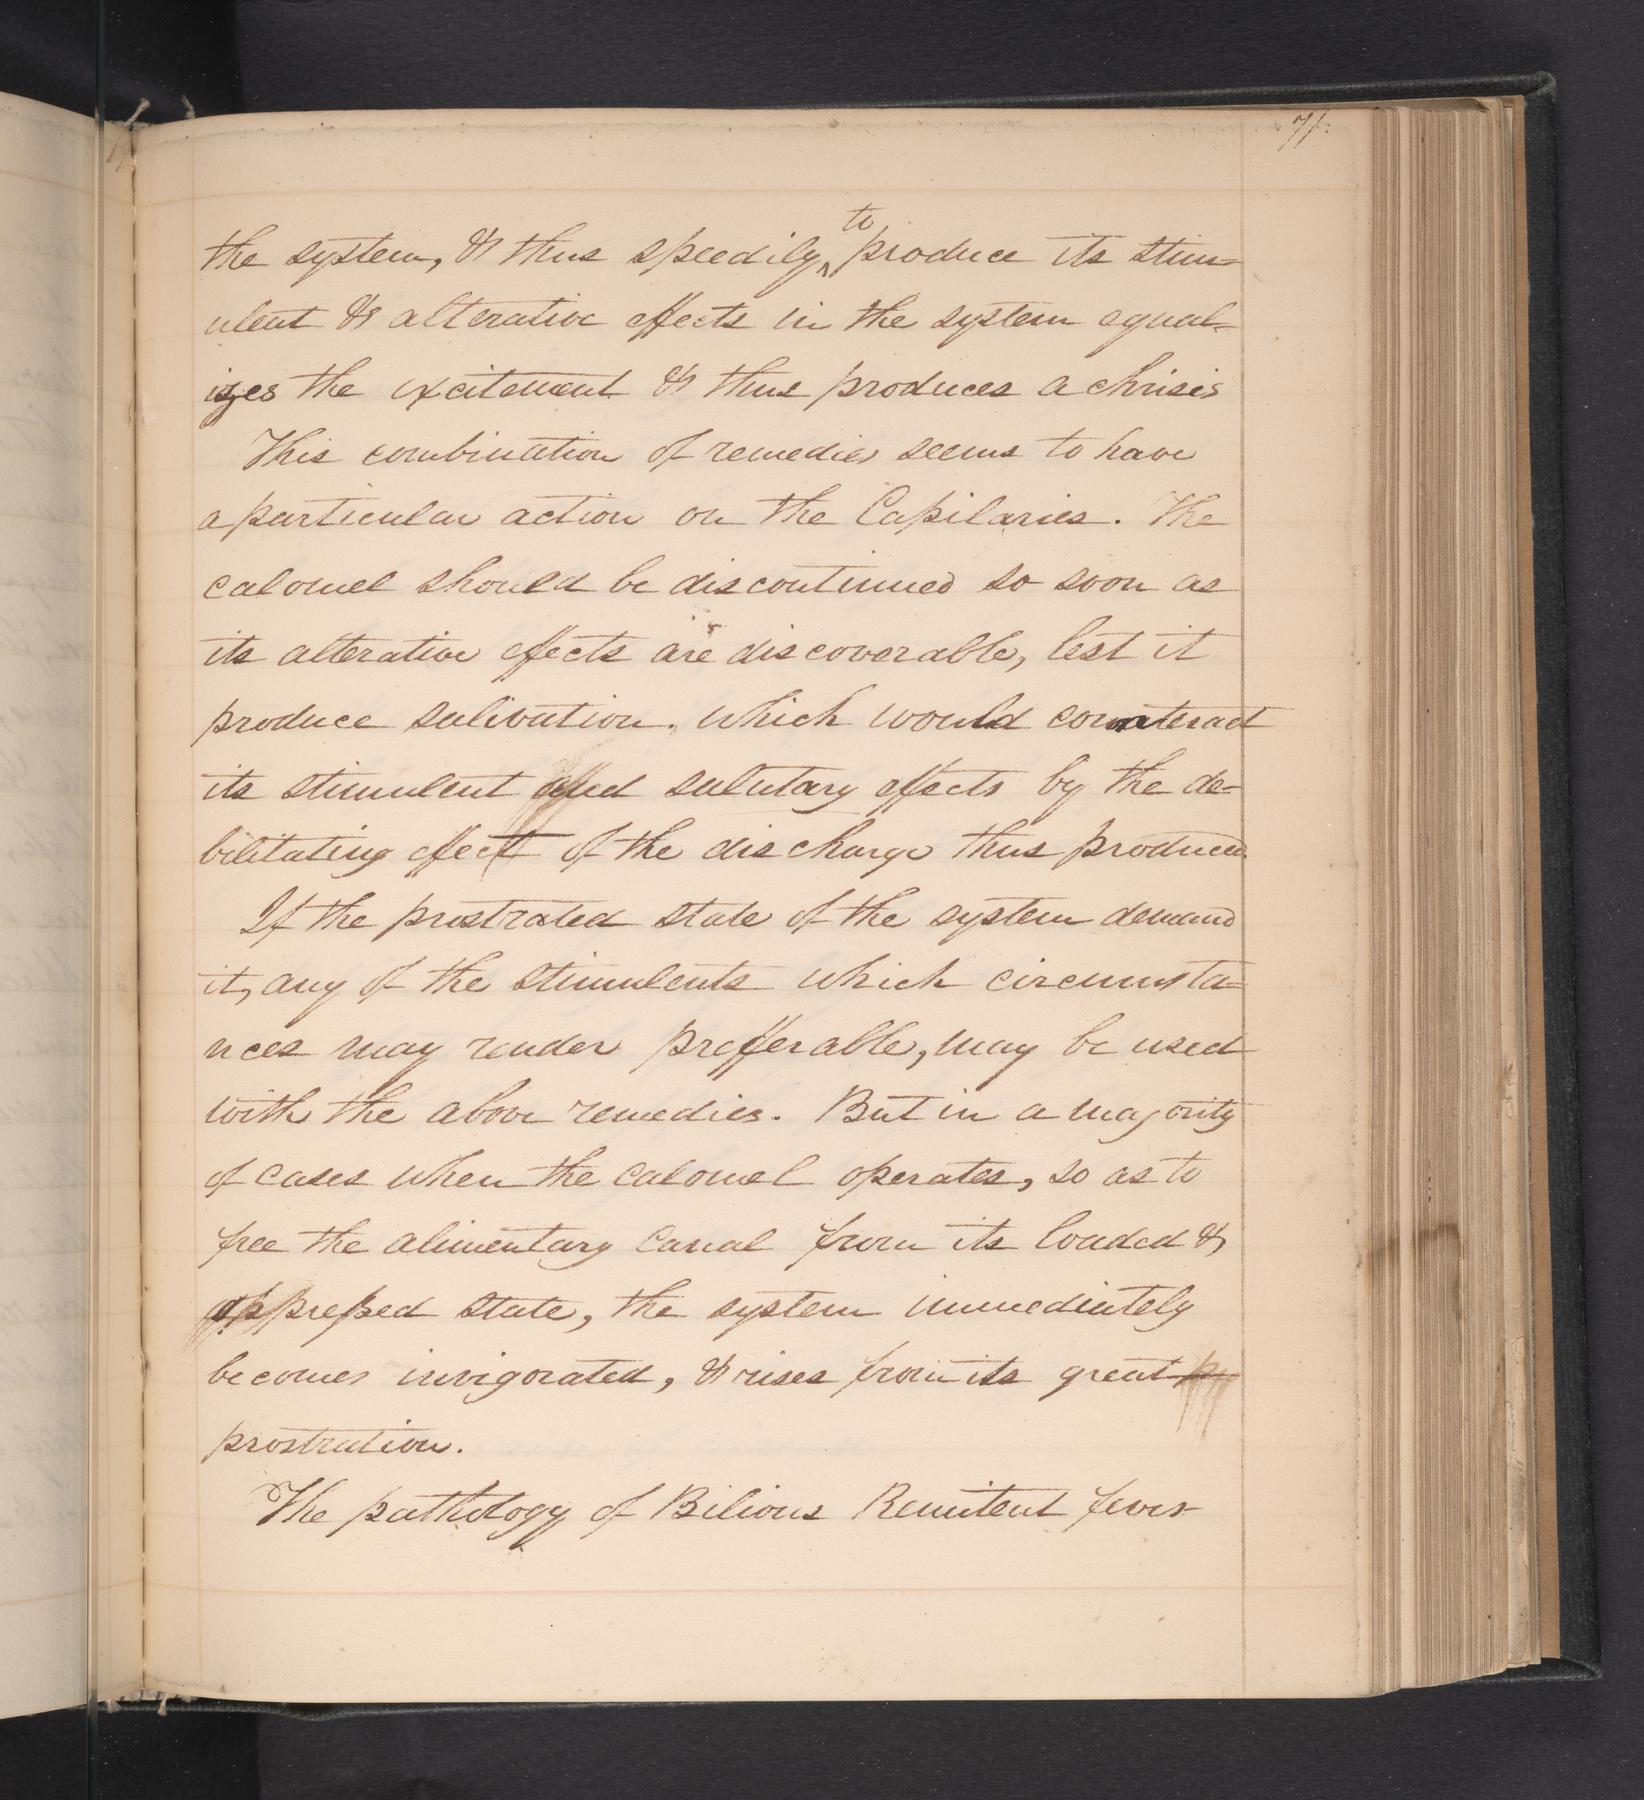 71.
the system, & thus speedily to produce its stim=
ulent & alterative effects in the system equal=
izes the excitement & thus produces a chrisis
This combination of remedies seems to have
a particular action on the Capilaries. The
calomel should be discontinued so soon as
its alterative effects are discoverable, lest it
produce salivation, which would counteract
its stimulent and salutary effects by the de=
bilitating effect of the discharge thus produced
If the prostrated state of the system demand
it, any of the stimulents which circumsta=
nces may render prefferable, may be used
with the above remedies. But in a majority
of cases when the calomel operates, so as to
free the alimentary Canal from its loaded &
oppressed state, the system immediately
becomes invigorated, & rises from its great
prostration.
The pathology of Bilious Remitent fever